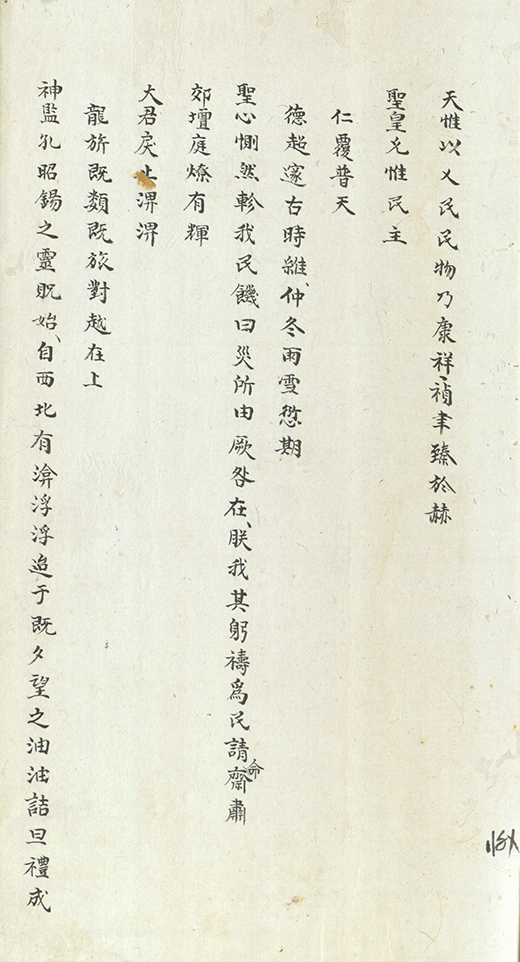 天惟以乂民民物乃康祥禎聿臻於赫
聖皇允惟民主
仁覆普天
德超邃古時維仲冬雨雪愆期
聖心惻然軫我民饑曰災所由厥咎在朕我其躬禱爲民請命齋肅
郊壇庭燎有輝
大君戾止淠淠
龍旂既類既旅對越在上
神監孔昭錫之靈貺始自西北有渰浮浮迨于既夕望之油油詰旦禮成